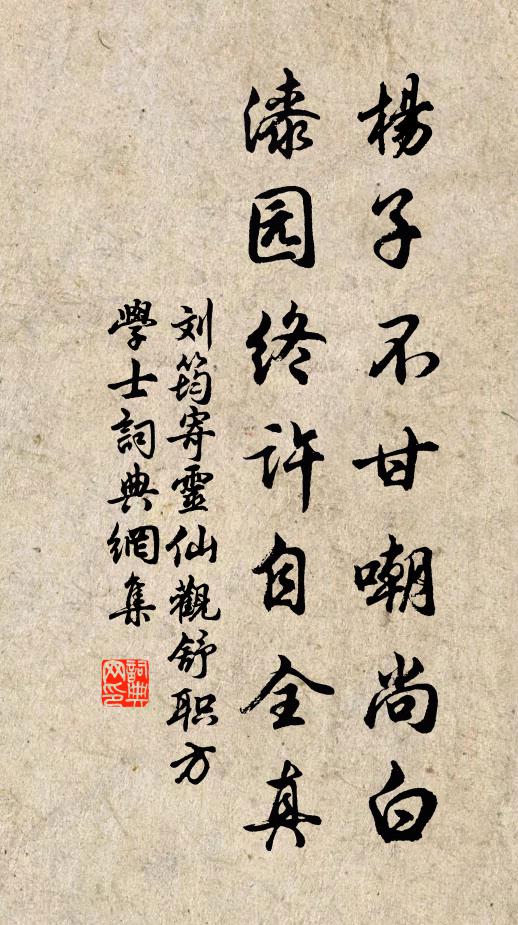 楊子不甘嘲尚白
漆园终许自全真
刘筠寄靈仙觀舒职方
學士詞典網集
詞典
网印